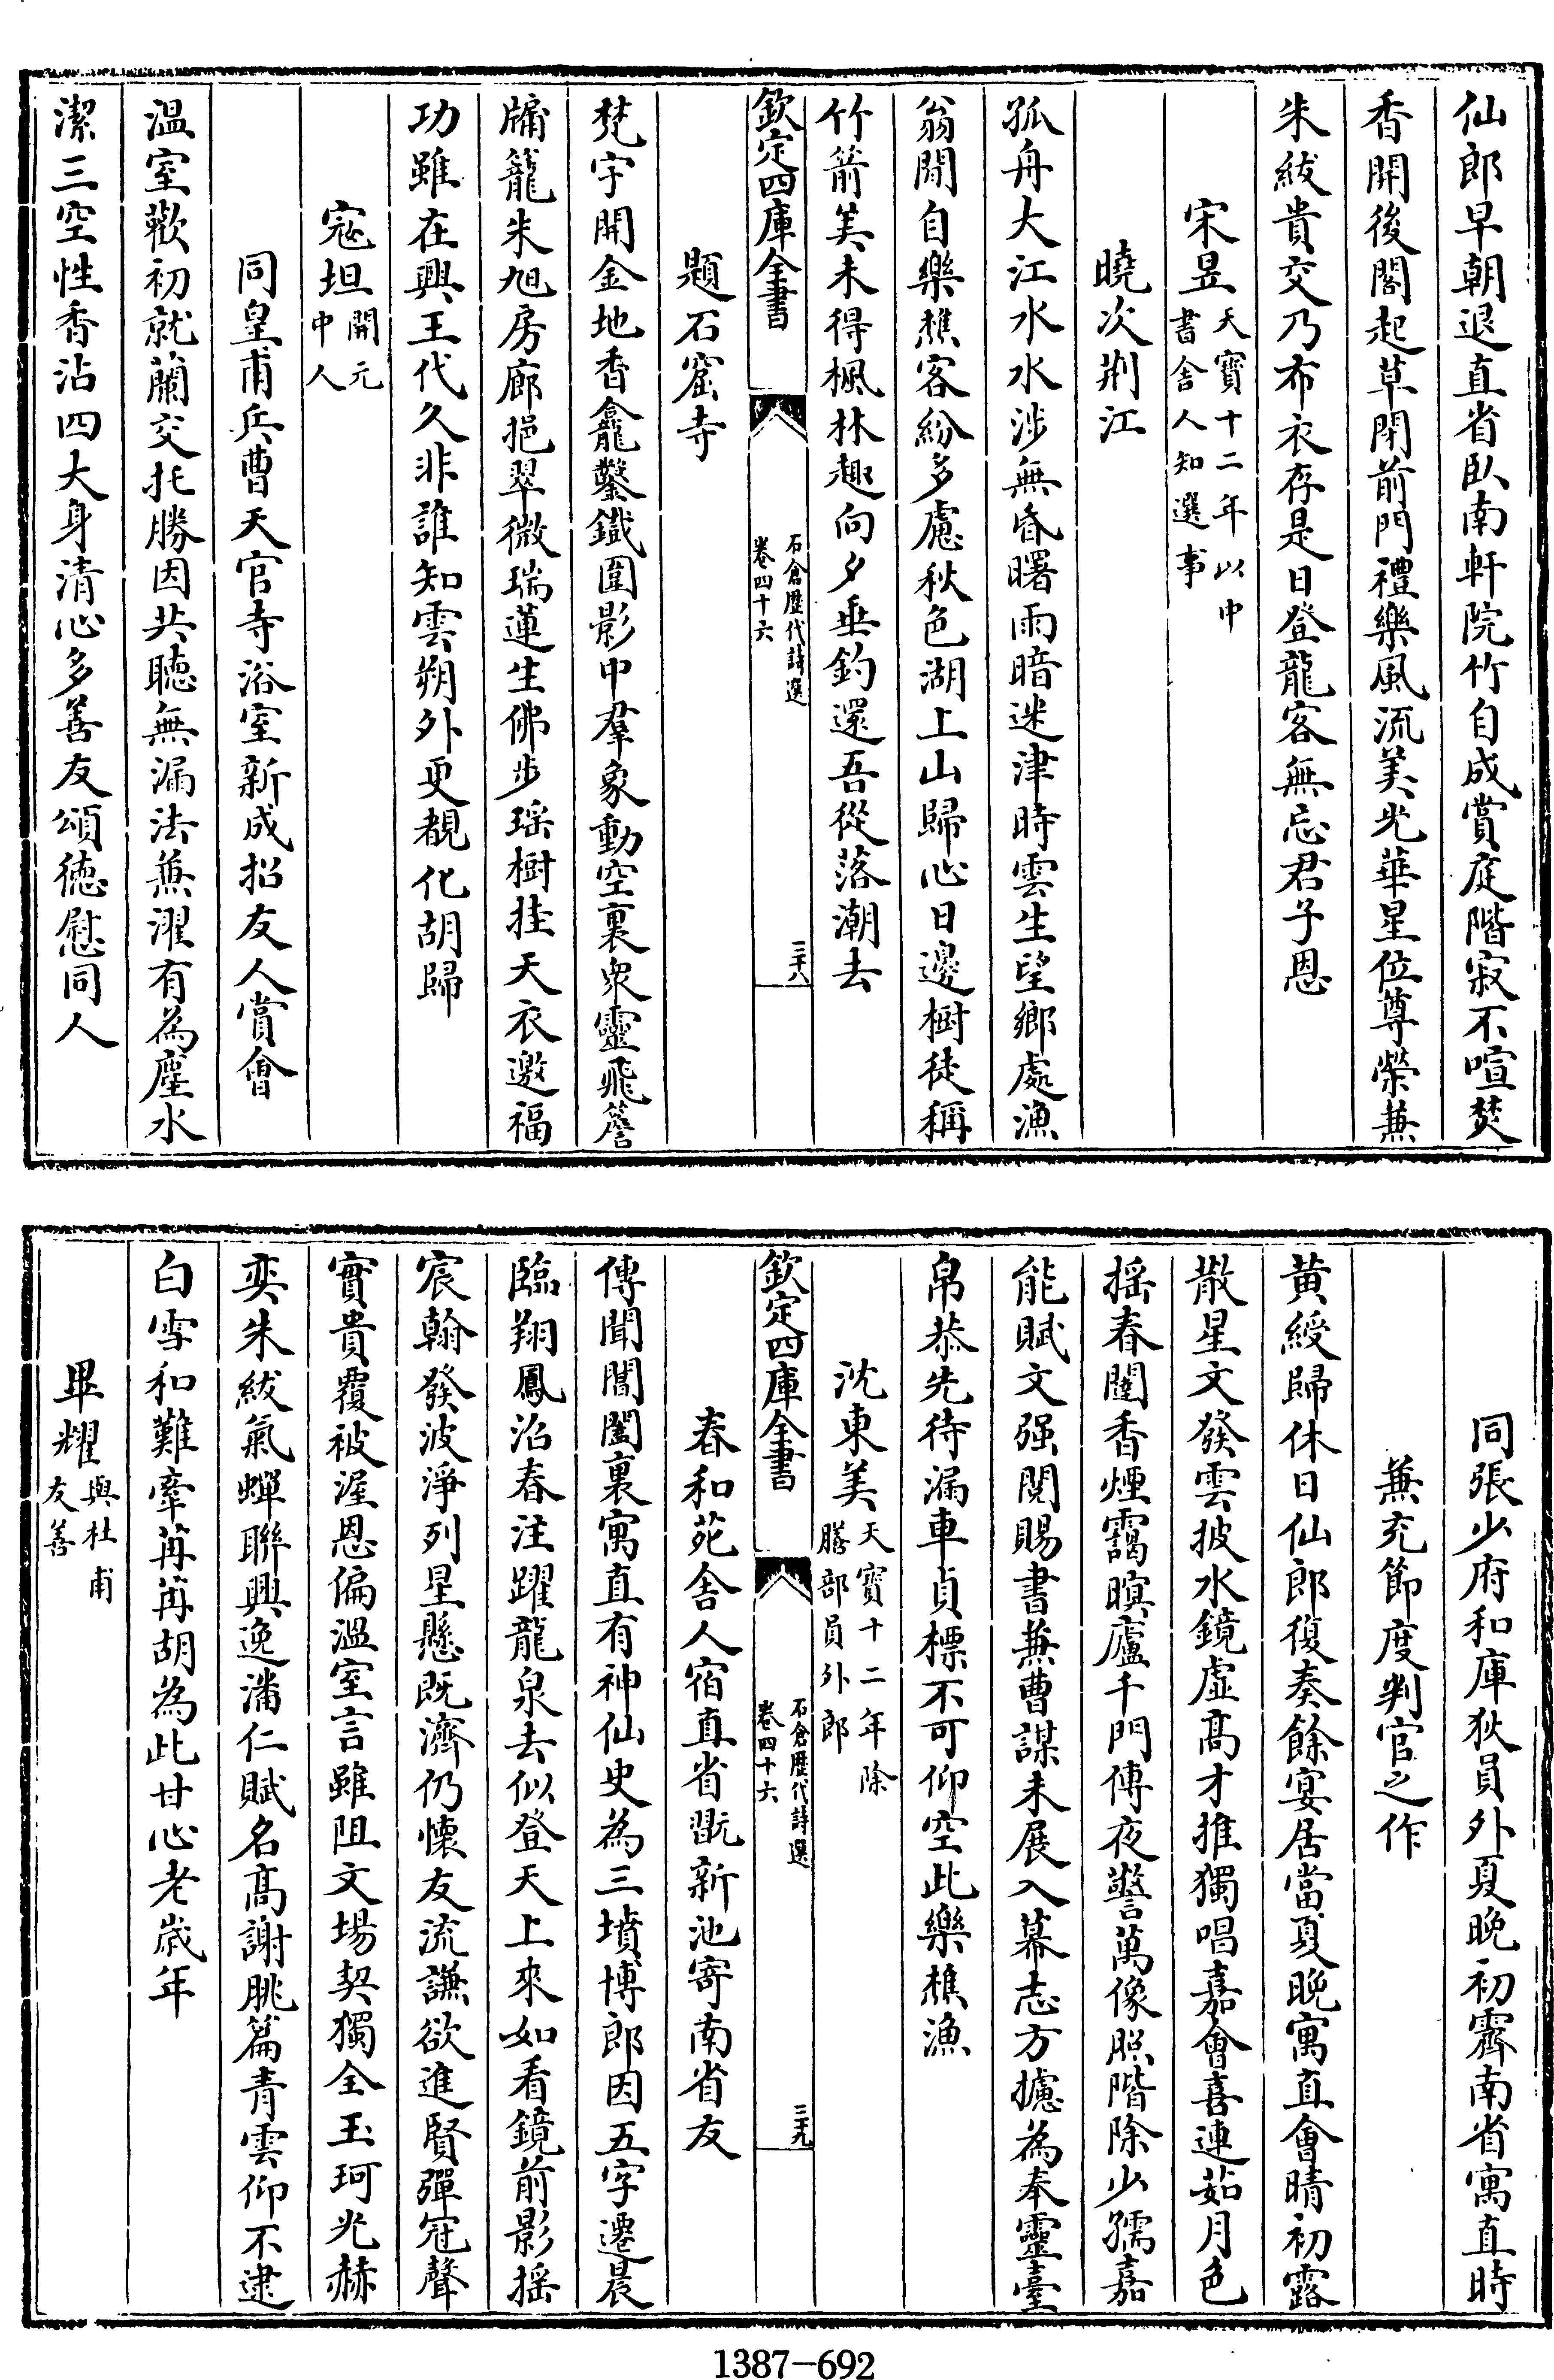 仙郎早朝退直省臥南軒院竹自成賞庭階寂不喧焚
香開後閤起草閉前門禮樂風流美光華星位尊榮兼
朱紱貴交乃布衣存是日登龍客無忘君子恩
宋昱天寶十二年以中
書舍人知選事
曉次荆江
孤舟大江水水涉無昏曙雨暗迷津時雲生望鄉處漁
翁閒自樂樵客紛多慮秋色湖上山歸心日邊樹徒稱
竹箭美未得楓林趣向夕垂釣還吾從落潮去
欽定四庫全書
石倉歷代詩選
卷四十六
三十八
題石窟寺
梵宇開金地香龕鑿鐵圍影中羣象動空裏衆靈飛簷
牖籠朱旭房廊挹翠微瑞蓮生佛步瑶樹挂天衣邀福
功雖在興王代久非誰知雲朔外更覩化胡歸
寇坦開元
中人
同皇甫兵曹天官寺浴室新成招友人賞會
温室歡初就蘭交托勝因共聽無漏法兼濯有為塵水
潔三空性香沾四大身清心多善友頌徳慰同人
同張少府和庫狄員外夏晚初霽南省寓直時
兼充節度判官之作
黄綬歸休日仙郎復奏餘宴居當夏晚寓直會晴初露
散星文發雲披水鏡虚髙才推獨唱嘉會喜連茹月色
揺春闥香煙靄暝廬千門傳夜警萬像照階除少孺嘉
能賦文强閲賜書兼曹謀未展入幕志方攄為奉靈臺
帛恭先待漏車貞標不可仰空此樂樵漁
沈東美天寶十二年除
膳部員外郎
欽定四庫全書
石倉歷代詩選
卷四十六
三十九
春和苑舍人宿直省翫新池寄南省友
傳聞閶闔裏寓直有神仙史為三墳博郎因五字遷晨
臨翔鳳沼春注躍龍泉去似登天上來如看鏡前影揺
宸翰發波淨列星懸既濟仍懐友流謙欲進賢彈冠聲
實貴覆被渥恩偏溫室言雖阻文場契獨全玉珂光赫
奕朱紱氣蟬聯興逸潘仁賦名髙謝朓篇青雲仰不逮
白雪和難牽苒苒胡為此甘心老歳年
畢耀與杜甫
友善
1387-692